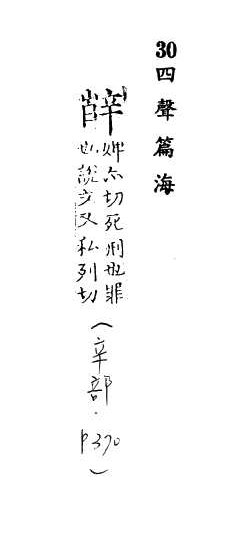 30四聲篇海
婢亦切死刑也罪
也說文又私列切
(辛部．P370)